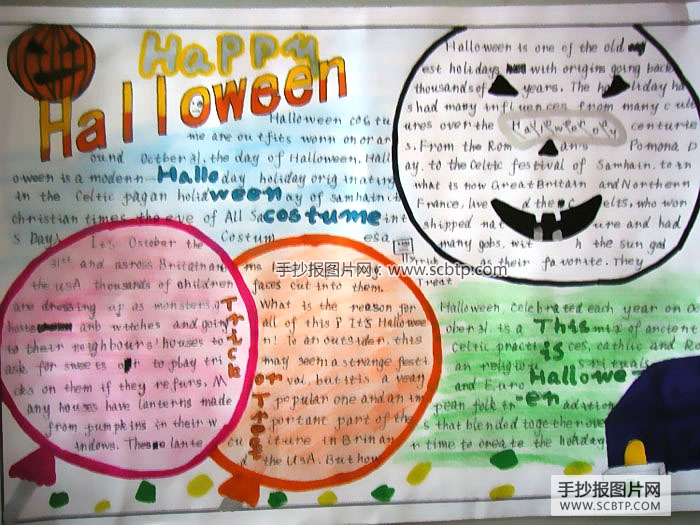 Happy
Halloween
Halloween costu
me are outfits wonn on or ar
ound Octber 31, the day of Halloween. Hall
oween is a modern- Hallo day holiday originating
in the Celtic pagan holid ween ay of samhain in
christian times, the eve of All Sa costume int
s Day). Costum esa
Halloween is one of the old
est holidays with origins going back
thousands of years. The holiday ha
s had many influences from many cult
ures over the Halloween centurie
s. From the Rom ans Pomona D
ay, to the Celtic festival of Samhain, to in
what is now Great Britain and Northern
France, live d the C elts, who won
shipped nat ure and had
many gobs, wit h the sun god
as their faronite. They
Trick
or
Treet
It's October the
31st and across Britain and
the USA thousands of children
are dressing up as monsters, g
hosts anb witches and going
to their neighbours' houses to
ask for sweets or to play tri
cks on them if they refurs. M
any houses have lanterns made
from pumpkins in their w
indows. These lante
Trick
or Treet
faces cut into them.
What is the reason for
all of this? It's Hallowee
n! To an outsider, this
may seem a strange festi
val, but it is a veny
popular one and an im
portant part of the
cu lture in Britain an
d the USA. But how
Halloween, celebrated each year on Oct
ober 31, is a This mix of ancient
Celtic practices, is cathlic and Ro
an religious rituals
and Euro Hallowe
pean folk tr -en adition
s that blended together ove
r time to create the honiday
手抄报图片网:www.scbtp.com
手抄报图片网
WWW.SCBTP.COM